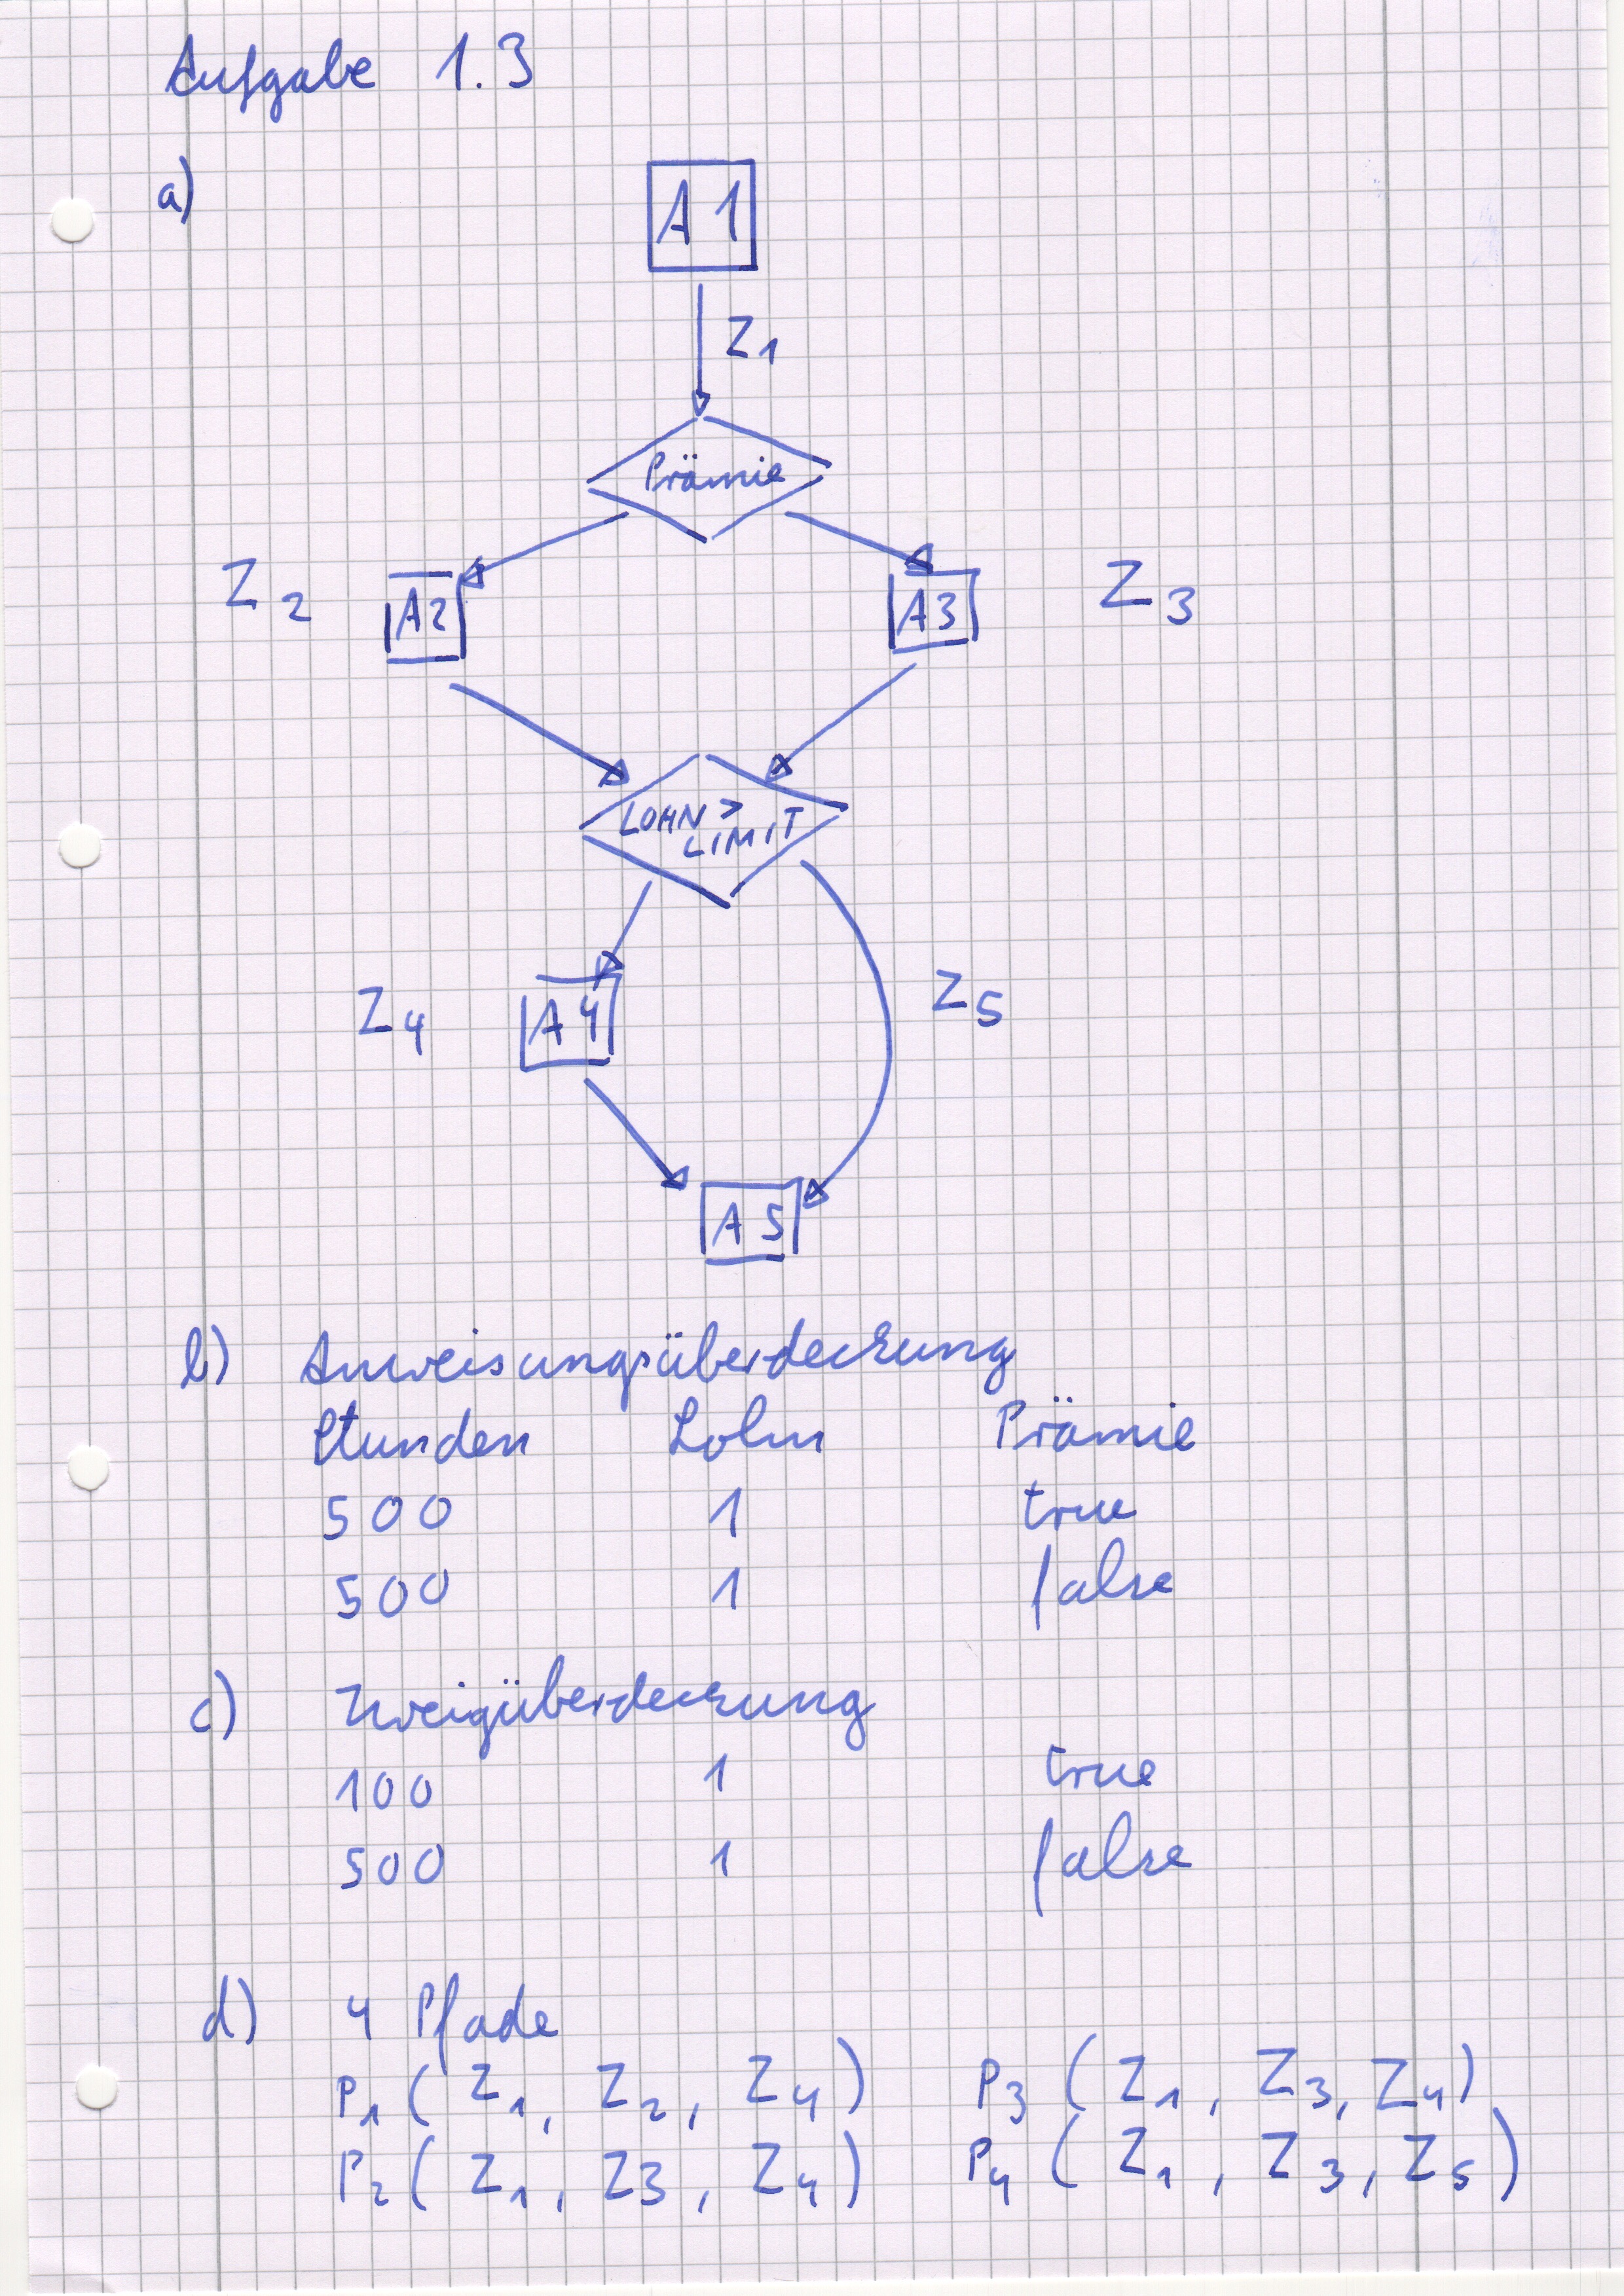 Aufgabe 1.3
a)
A1
Z1
Prämie
Z2 A2 A3 Z3
LOHN >
LIMIT
Z4 A4 Z5
A5
b) Anweisungsüberdeckung
Stunden Lohn Prämie
500 1 true
500 1 false
c) Zweigüberdeckung
100 1 true
500 1 false
d) 4 Pfade
P1 ( Z1, Z2, Z4 ) P3 ( Z1, Z3, Z4 )
P2 ( Z1, Z3, Z4 ) P4 ( Z1, Z3, Z5 )